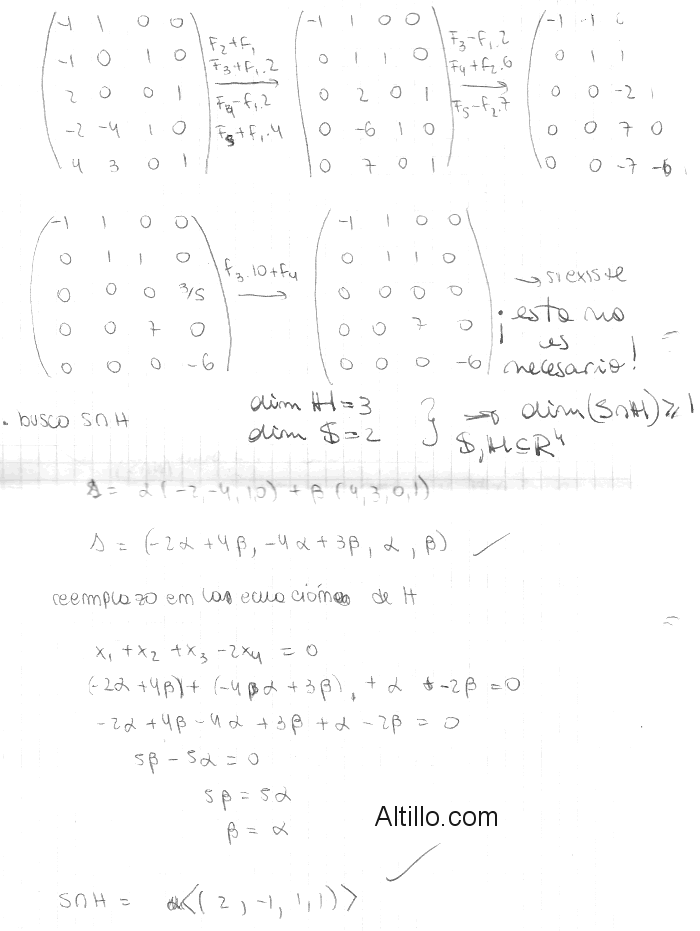 -1 1 0 0
-1 0 1 0
2 0 0 1
-2 -4 1 0
4 3 0 1
F2+F1
F3+F1.2
F4-F1.2
F5+F1.4
-1 1 0 0
0 1 1 0
0 2 0 1
0 -6 1 0
0 7 0 1
F3-F1.2
F4+F2.6
F5-F2.7
-1 1
0 1 1
0 0 -2 1
0 0 7 0
0 0 -7 -6
-1 1 0 0
0 1 1 0
0 0 0 3/5
0 0 7 0
0 0 0 -6
F3.10+F4
-1 1 0 0
0 1 1 0
0 0 0 0
0 0 7 0
0 0 0 -6
→ si existe
¡esto no
es
necesario!
. busco S∩H
dim H=3
dim S=2
} → dim(S∩H)≥1
S,H⊆R⁴
s = α(-2,-4,1,0) + β(4,3,0,1)
s = (-2α+4β, -4α+3β, α, β)
reemplazo em las ecuaciónes de H
x₁ + x₂ + x₃ - 2x₄ = 0
(-2α+4β)+ (-4α+3β), + α -2β = 0
-2α+4β-4α+3β+α-2β = 0
5β - 5α = 0
5β = 5α
β = α
Altillo.com
S∩H = <(2,-1,1,1)>